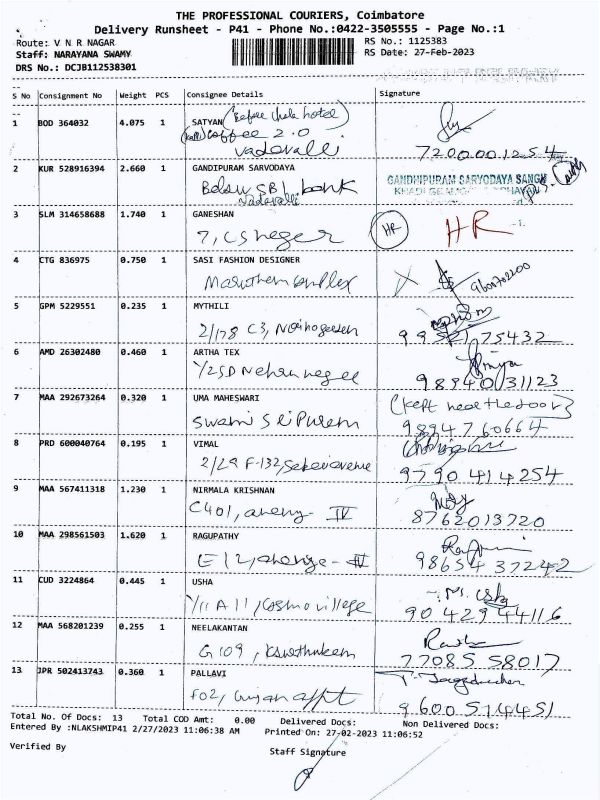 THE PROFESSIONAL COURIERS, Coimbatore
Delivery Runsheet - P41 - Phone No.:0422-3505555 - Page No.:1
Route: V N R NAGAR
RS No.: 1125383
Staff: NARAYANA SWAMY
RS Date: 27-Feb-2023
DRS No.: DCJB112538301
S No Consignment No Weight PCS Consignee Details Signature
1 BOD 364032 4.075 1 SATYAN
coffee 2.0
vadavalli
7200001254
2 KUR 528916394 2.660 1 GANDIPURAM SARVODAYA
GANDHIPURAM SARVODAYA SANGH
Below SBI bank
vadavalli
3 SLM 314658688 1.740 1 GANESHAN
7, CS neger HR HR
4 CTG 836975 0.750 1 SASI FASHION DESIGNER
Maruthem complex
5 GPM 5229551 0.235 1 MYTHILI
2/178 C3,
6 AMD 26302480 0.460 1 ARTHA TEX
9894031123
7 MAA 292673264 0.320 1 UMA MAHESWARI (kept near the door)
Swami Sri Purem 9894760664
8 PRD 600040764 0.195 1 VIMAL
2/29 F-132, 9790414254
9 MAA 567411318 1.230 1 NIRMALA KRISHNAN
C401, IV 8762013720
10 MAA 298561503 1.620 1 RAGUPATHY
9865437242
11 CUD 3224864 0.445 1 USHA
Y/11 A11, Cosmo village 9042944116
12 MAA 568201239 0.255 1 NEELAKANTAN
G109, 7708558017
13 JPR 502413743 0.360 1 PALLAVI
F02, appt 9600574451
Total No. Of Docs: 13 Total COD Amt: 0.00 Delivered Docs: Non Delivered Docs:
Entered By :NLAKSHMIP41 2/27/2023 11:06:38 AM Printed On: 27-02-2023 11:06:52
Verified By Staff Signature